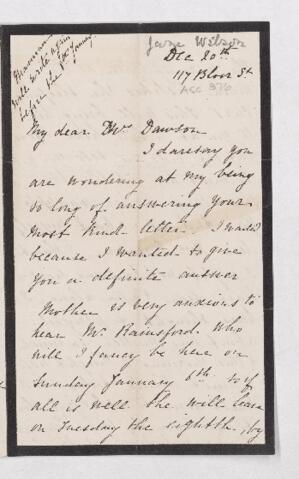 Jane Wilson
Dec 20th
117 Bloor St
ACC 876
will write again
before the 1st January
My dear Mrs Dawson
I daresay you
are wondering at my being
so long of answering your
most kind letter. I waited
because I wanted to give
you a definite answer
Mother is very anxious to
hear Mr Rainsford who
will I fancy be here on
Sunday January 6th so if
all is well she will leave
on Tuesday the eighth, by